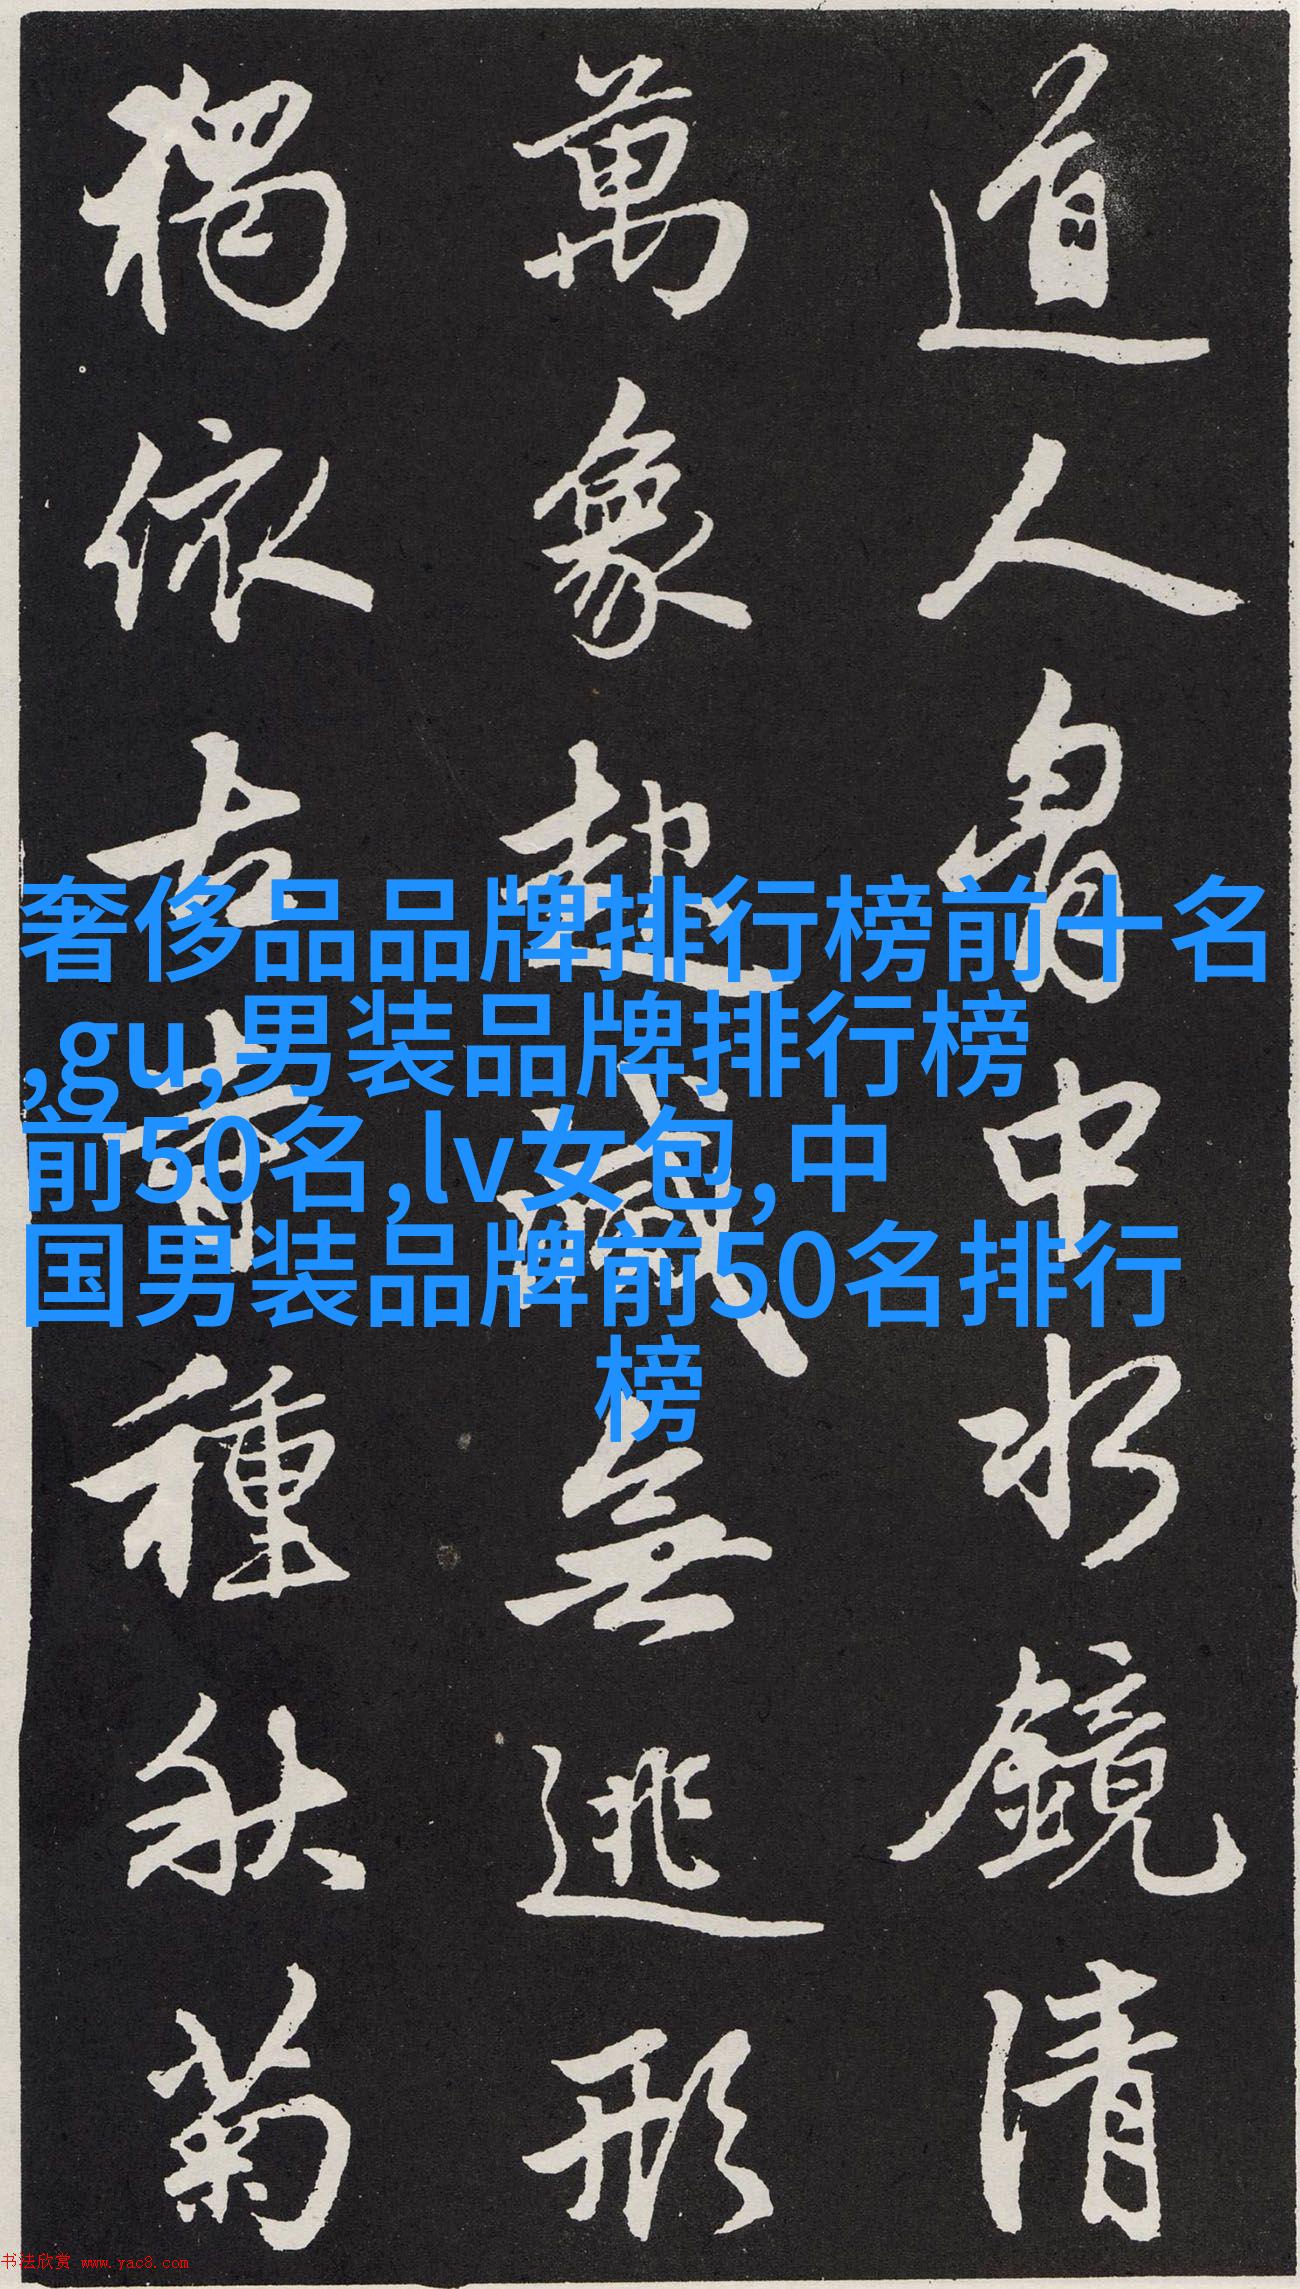 道人胷中水鏡清
萬象起滅無逃形
獨依古寺種秋菊
奢侈品品牌排行榜前十名
,gu,男装品牌排行榜
前50名,lv女包,中
国男装品牌前50名排行
榜
书法欣赏 www.yac8.com